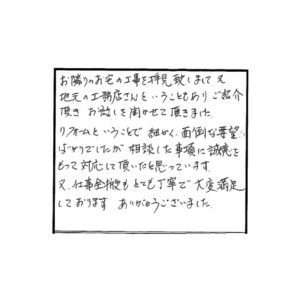 お隣りのお宅の工事を拝見致しまして 又
地元の工務店さんということもあり ご紹介
頂き お話しを聞かせて頂きました。
リフォームということで 細かく、面倒な要望
ばかりでしたが 相談した事項に誠意を
もって対応して頂いたと思っています。
又、仕事全般も とても丁寧で 大変満足
しております ありがとうございました。